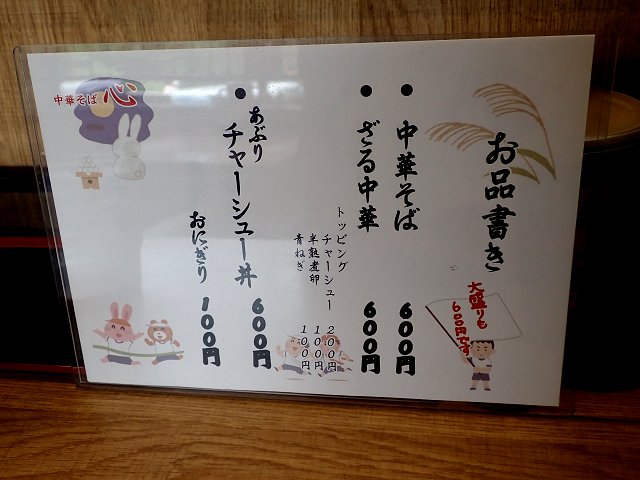 お品書き
大盛りも
600円です
● 中華そば 600円
● ざる中華 600円
トッピング
チャーシュー 200円
半熟煮卵 100円
青ねぎ 100円
● あぶり
チャーシュー丼 600円
おにぎり 100円
中華そば 心